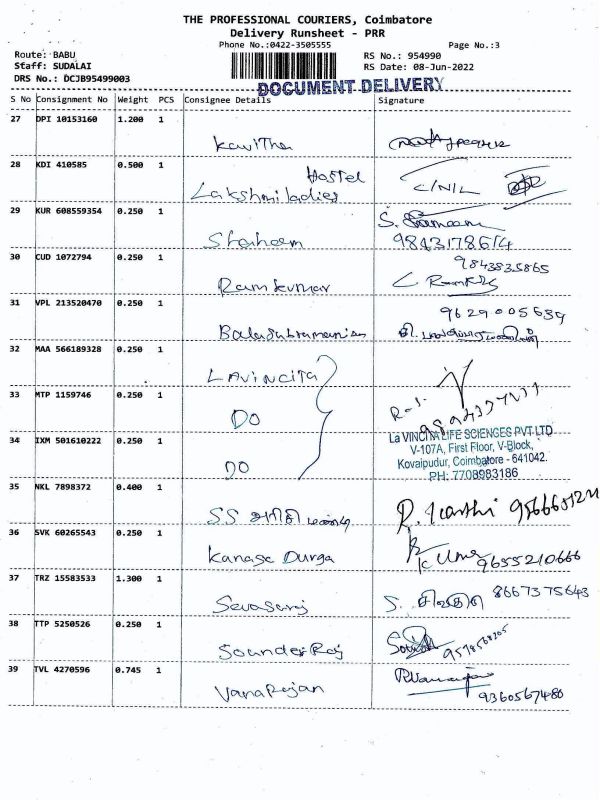 THE PROFESSIONAL COURIERS, Coimbatore
Delivery Runsheet - PRR
Phone No.:0422-3505555
Page No.:3
Route: BABU
RS No.: 954990
Staff: SUDALAI
RS Date: 08-Jun-2022
DRS No.: DCJB95499003
DOCUMENT DELIVERY
S No Consignment No Weight PCS Consignee Details Signature
27 DPI 10153160 1.200 1
Kavitha
28 KDI 410585 0.500 1
Hostel
Lakshmi ladies C/NIL
29 KUR 608559354 0.250 1
Shaheem 9843178614
30 CUD 1072794 0.250 1
9843835865
Ramkumar
31 VPL 213520470 0.250 1
9629005639
Balasubramanian
32 MAA 566189328 0.250 1
LAVINCITA
33 MTP 1159746 0.250 1
DO
La VINCITA LIFE SCIENCES PVT LTD
34 IXM 501610222 0.250 1
V-107A, First Floor, V-Block,
Kovaipudur, Coimbatore - 641042.
DO
PH: 7708983186
35 NKL 7898372 0.400 1
SS R. Karthi
36 SVK 60265543 0.250 1
Kanaga Durga K Uma 9655210666
37 TRZ 15583533 1.300 1
8667375643
Sevasaraj S.
38 TTP 5250526 0.250 1
SounderRaj
39 TVL 4270596 0.745 1
VanaRajan 9360567480